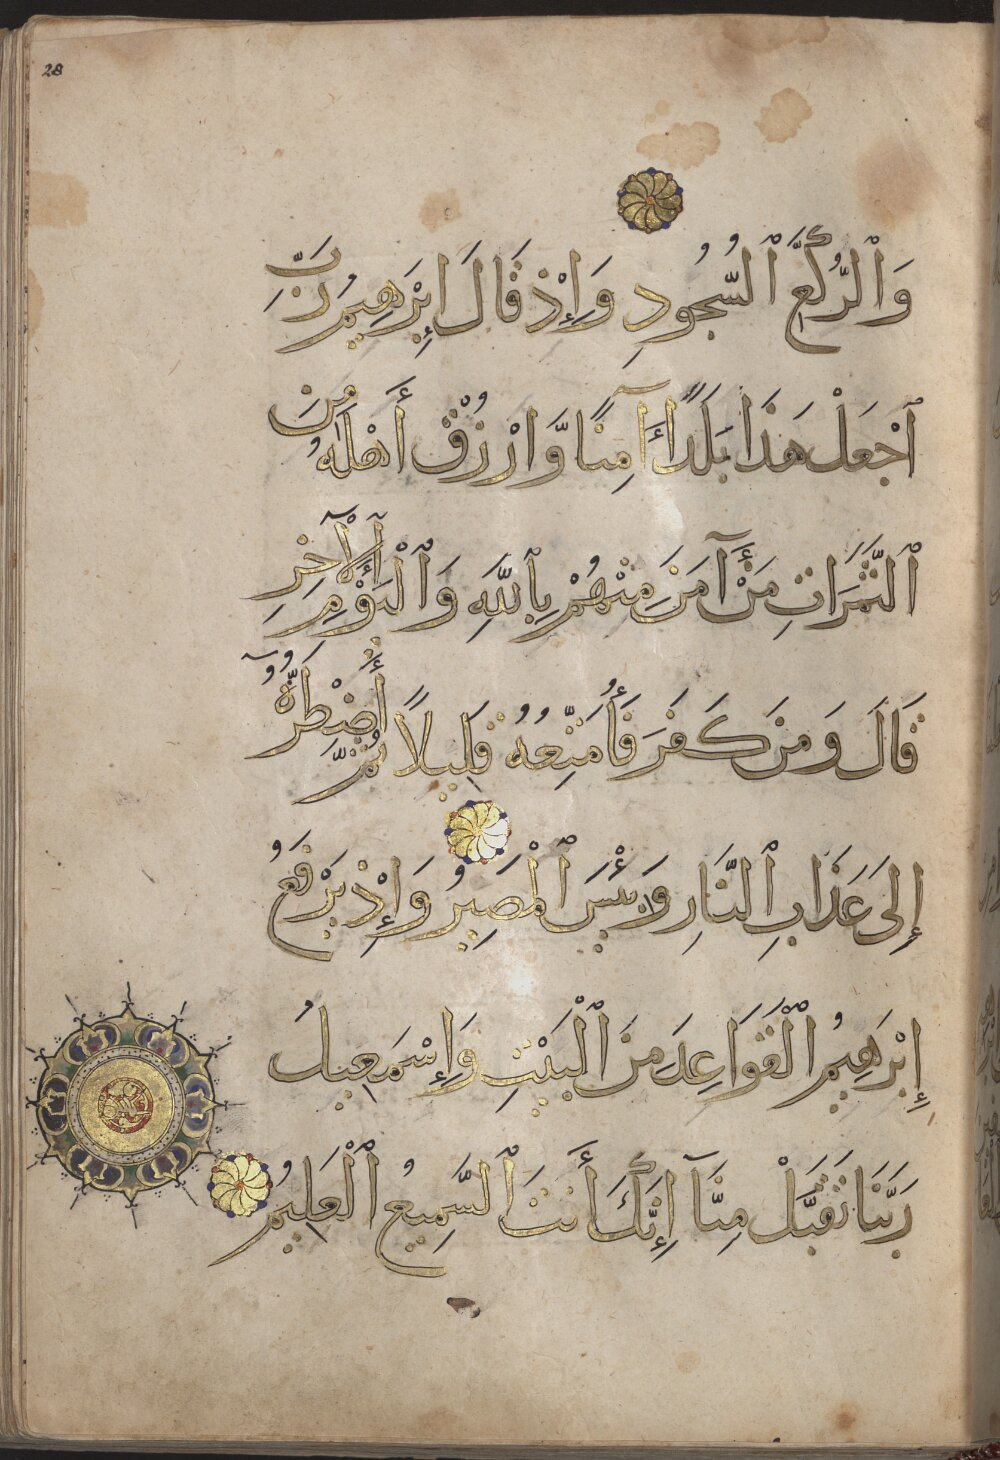 28
وَٱلرُّكَّعِ ٱلسُّجُودِ وَإِذْ قَالَ إِبْرَهِيمُ رَبِّ
ٱجْعَلْ هَذَا بَلَدًا ءَامِنًا وَّارْزُقْ أَهْلَهُ مِنَ
ٱلثَّمَرَاتِ مَنْ ءَآمَنَ مِنْهُمْ بِٱللَّهِ وَٱلْيَوْمِ ٱلْأَخِرِ
قَالَ وَمَن كَفَرَ فَأُمَتِّعُهُ قَلِيلًا ثُمَّ أَضْطَرُّهُ
إِلَى عَذَابِ ٱلنَّارِ وَبِئْسَ ٱلْمَصِيرُ وَإِذْ يَرْفَعُ
إِبْرَهِيمُ ٱلْقَوَاعِدَ مِنَ ٱلْبَيْتِ وَإِسْمَعِيلُ
رَبَّنَا تَقَبَّلْ مِنَّآ إِنَّكَ أَنتَ ٱلسَّمِيعُ ٱلْعَلِيمُ